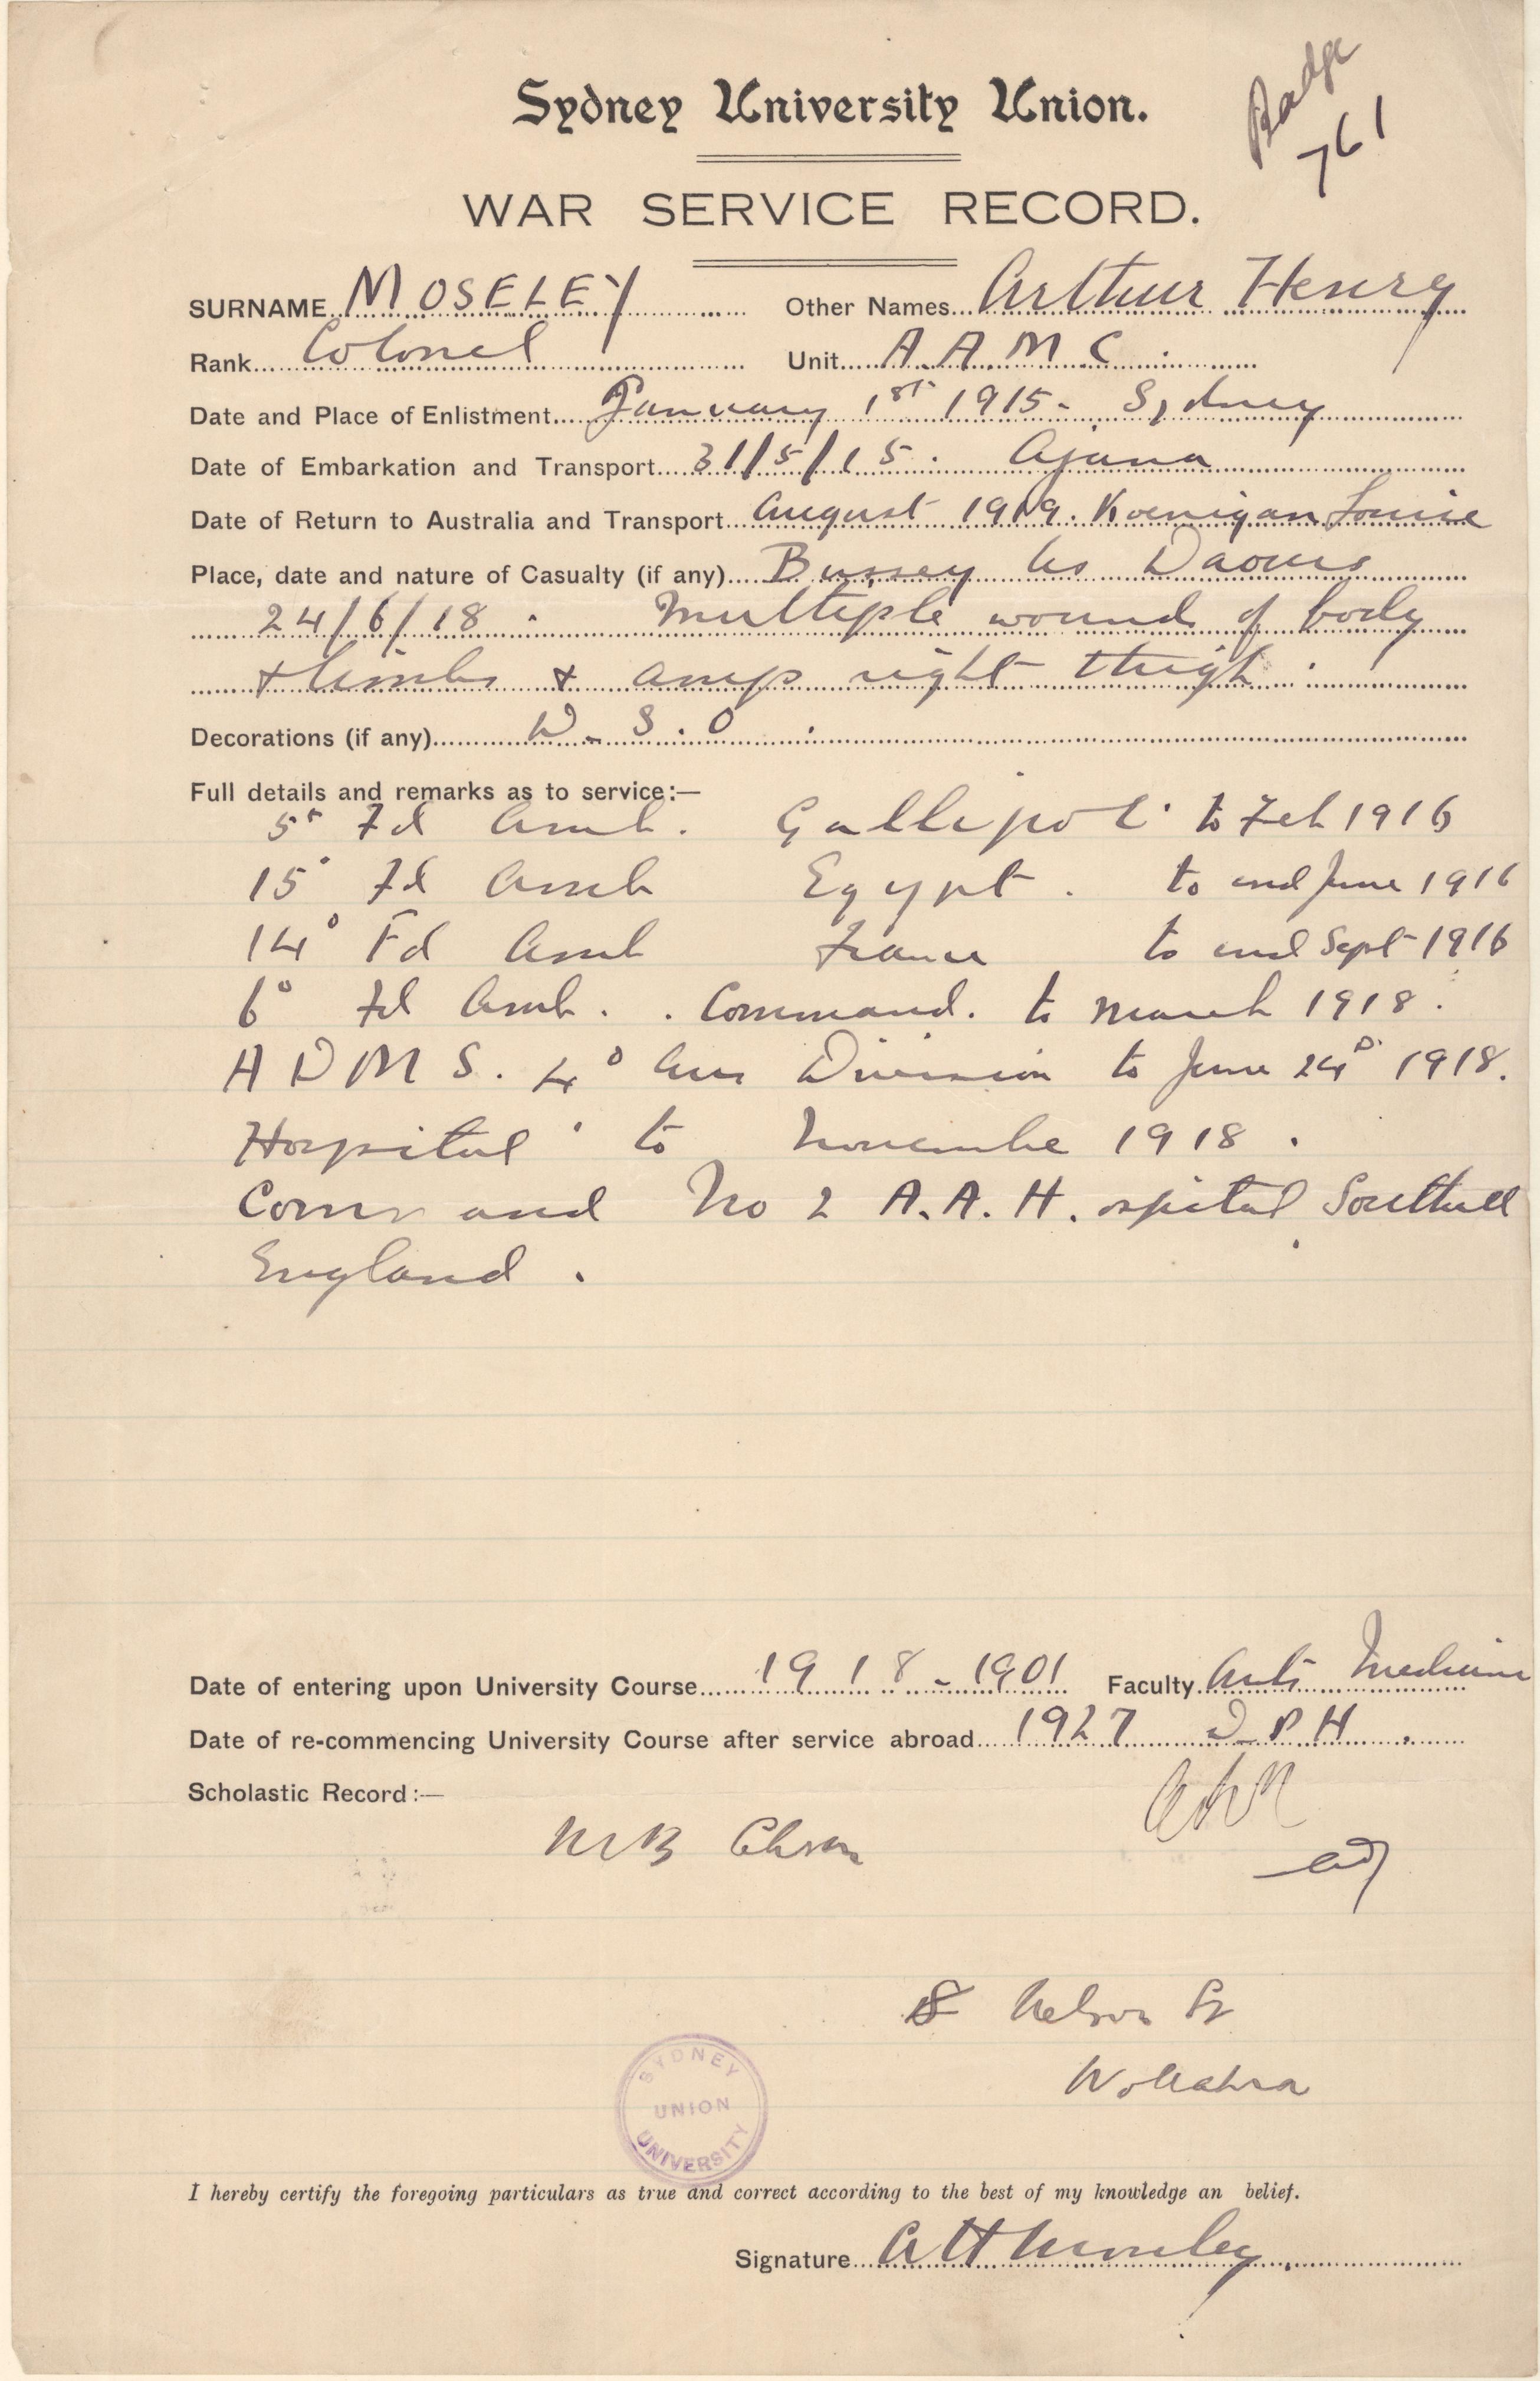 Badge
761
Sydney University Union.
WAR SERVICE RECORD.
SURNAME MOSELEY Other Names Arthur Henry
Rank Colonel Unit A.A.M.C.
Date and Place of Enlistment January 1st 1915 - Sydney
Date of Embarkation and Transport 31/5/15. Ajana
Date of Return to Australia and Transport August 1919. Koenigan Louise
Place, date and nature of Casualty (if any) Bussey les Daours
24/6/18. Multiple wounds of body
& limbs & amp right thigh.
Decorations (if any) D.S.O.
Full details and remarks as to service:—
5° Fd Amb. Gallipoli to Feb 1916
15° Fd Amb Egypt. to end June 1916
14° Fd Amb France to end Sept 1916
6° Fd Amb. . Command. to March 1918.
A D M S. 4° Aus Division to June 24 1918.
Hospital to November 1918.
Command No 2 A.A.H.ospital Southall
England.
Date of entering upon University Course 1918-1901 Faculty Arts Medicine
Date of re-commencing University Course after service abroad 1927 D.P.H.
Scholastic Record:—
MB ChM
8 Nelson St
Wollahra
SYDNEY
UNION
UNIVERSITY
I hereby certify the foregoing particulars as true and correct according to the best of my knowledge an belief.
Signature A H Moseley